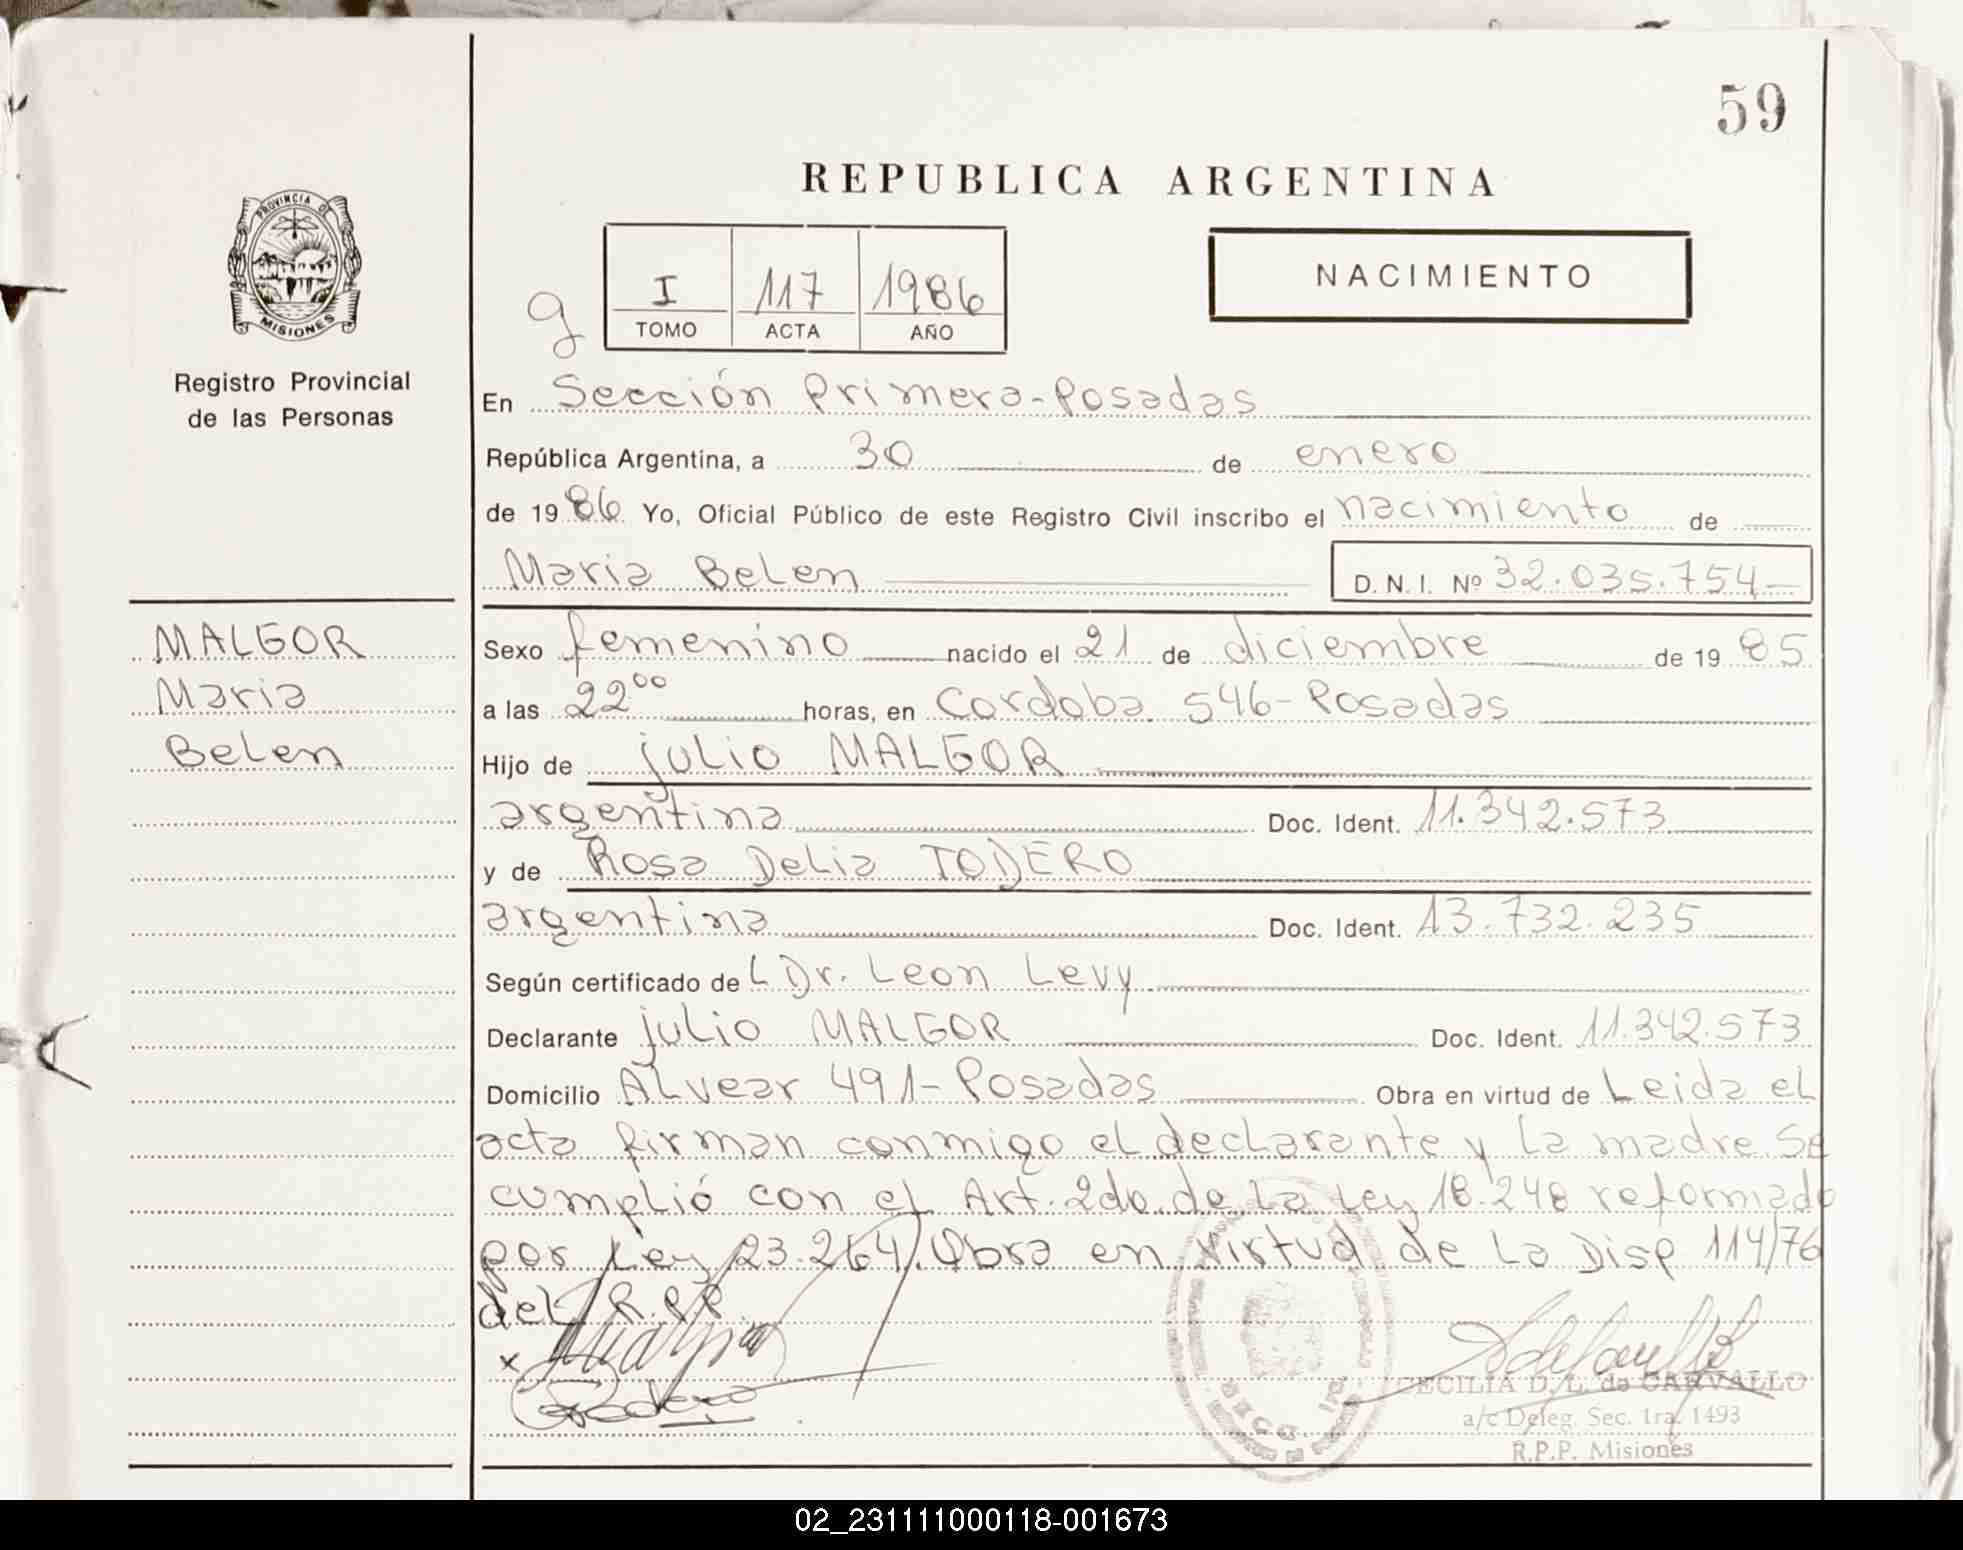 59
REPUBLICA ARGENTINA
PROVINCIA DE
MISIONES
I 117 1986
TOMO ACTA AÑO
NACIMIENTO
Registro Provincial
de las Personas
En Sección Primera-Posadas
República Argentina, a 30 de enero
de 1986 Yo, Oficial Público de este Registro Civil inscribo el nacimiento de
Maria Belen D. N. I. Nº 32.035.754-
MALGOR
Maria
Belen
Sexo femenino nacido el 21 de diciembre de 1985
a las 22⁰⁰ horas, en Cordoba 546-Posadas
Hijo de julio MALGOR
argentina Doc. Ident. 11.342.573
y de Rosa Delia TODERO
argentina Doc. Ident. 13.732.235
Según certificado de L Dr. Leon Levy
Declarante julio MALGOR Doc. Ident. 11.342.573
Domicilio Alvear 491-Posadas Obra en virtud de Leida el
acta firman conmigo el declarante y la madre. Se
cumplió con el Art. 2do. de la Ley 18.248 reformado
por Ley 23.264. Obra en virtud de la Disp 114/76
del R.P.P.
x
CECILIA D. L. de CARVALLO
a/c Deleg. Sec. 1ra. 1493
R.P.P. Misiones
SECC. 1ra.
02_231111000118-001673